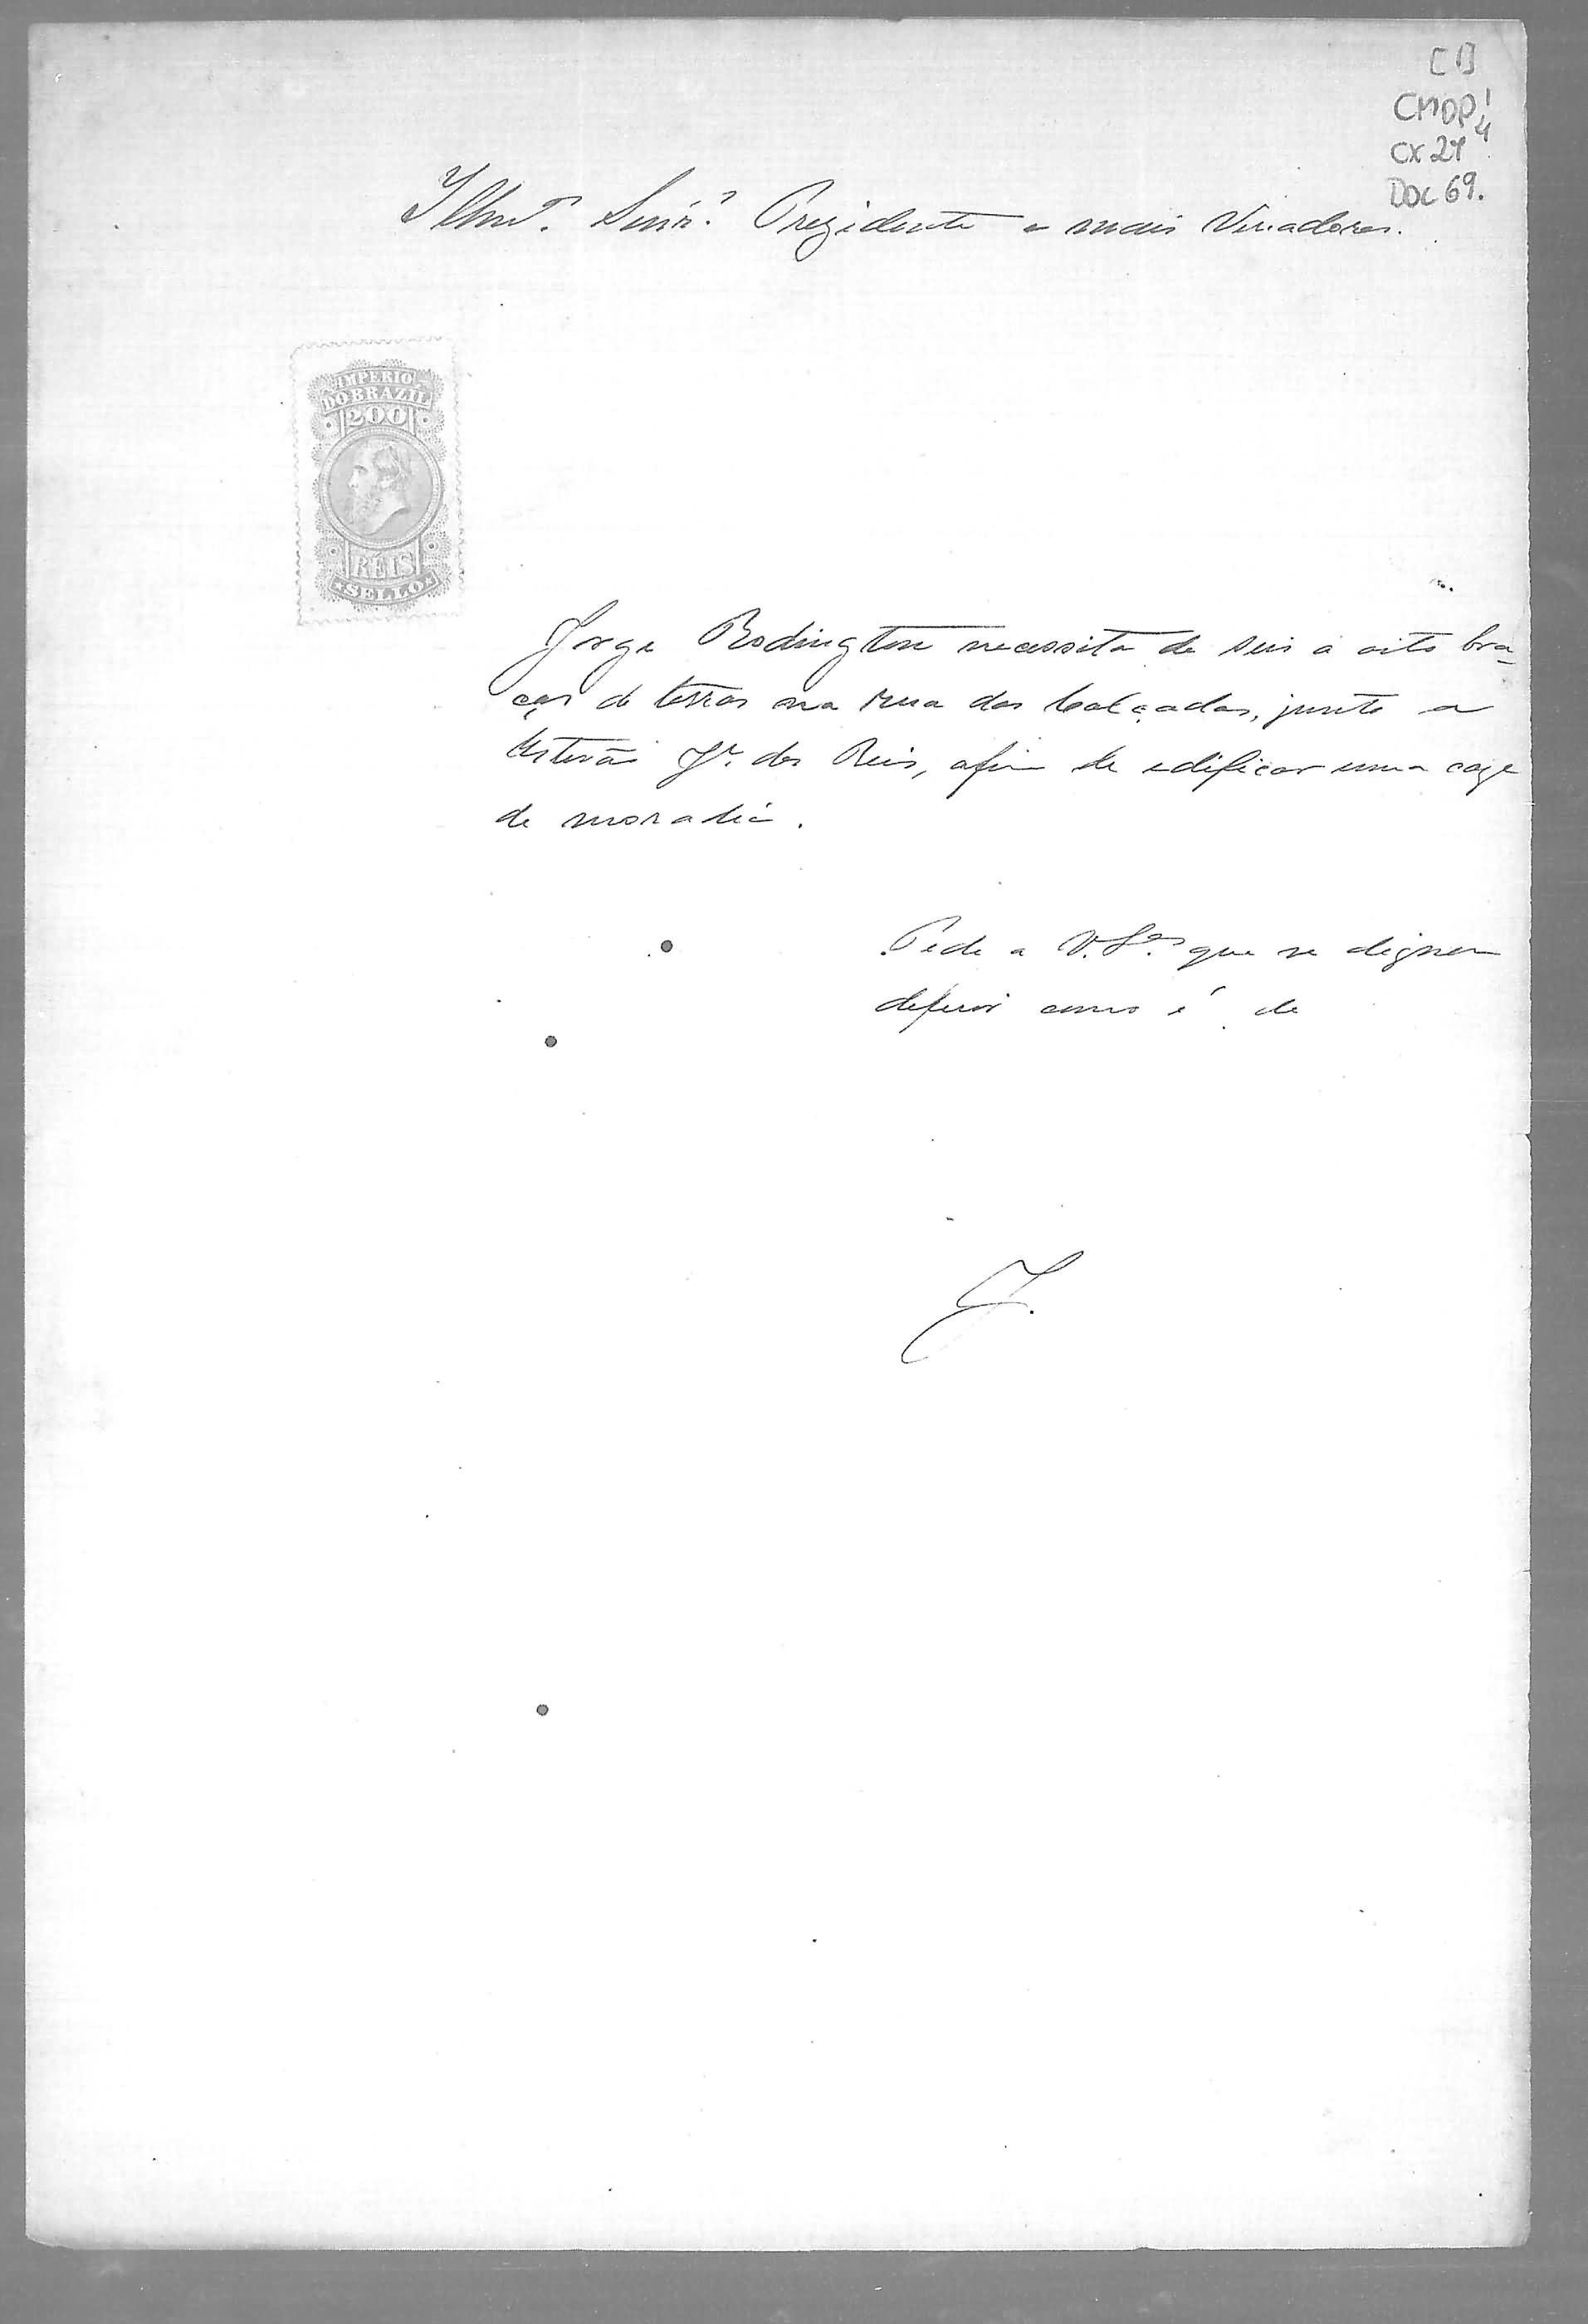 [1]
CMOP 1/4
CX 27
DOC 69.
Illmo. Senr.
Prezidente e mais Veriadores.
IMPERIO
DO BRAZIL
200
RÉIS
SELLO
Jorge Bodington necessita de seis a oito bra-
ças de terras na rua das Calçadas, junto a
Estevão Je. dos Reis, afim de edificar uma caza
de moradia.
Pede a V. Sas. que se dignem
deferir como é de
J.